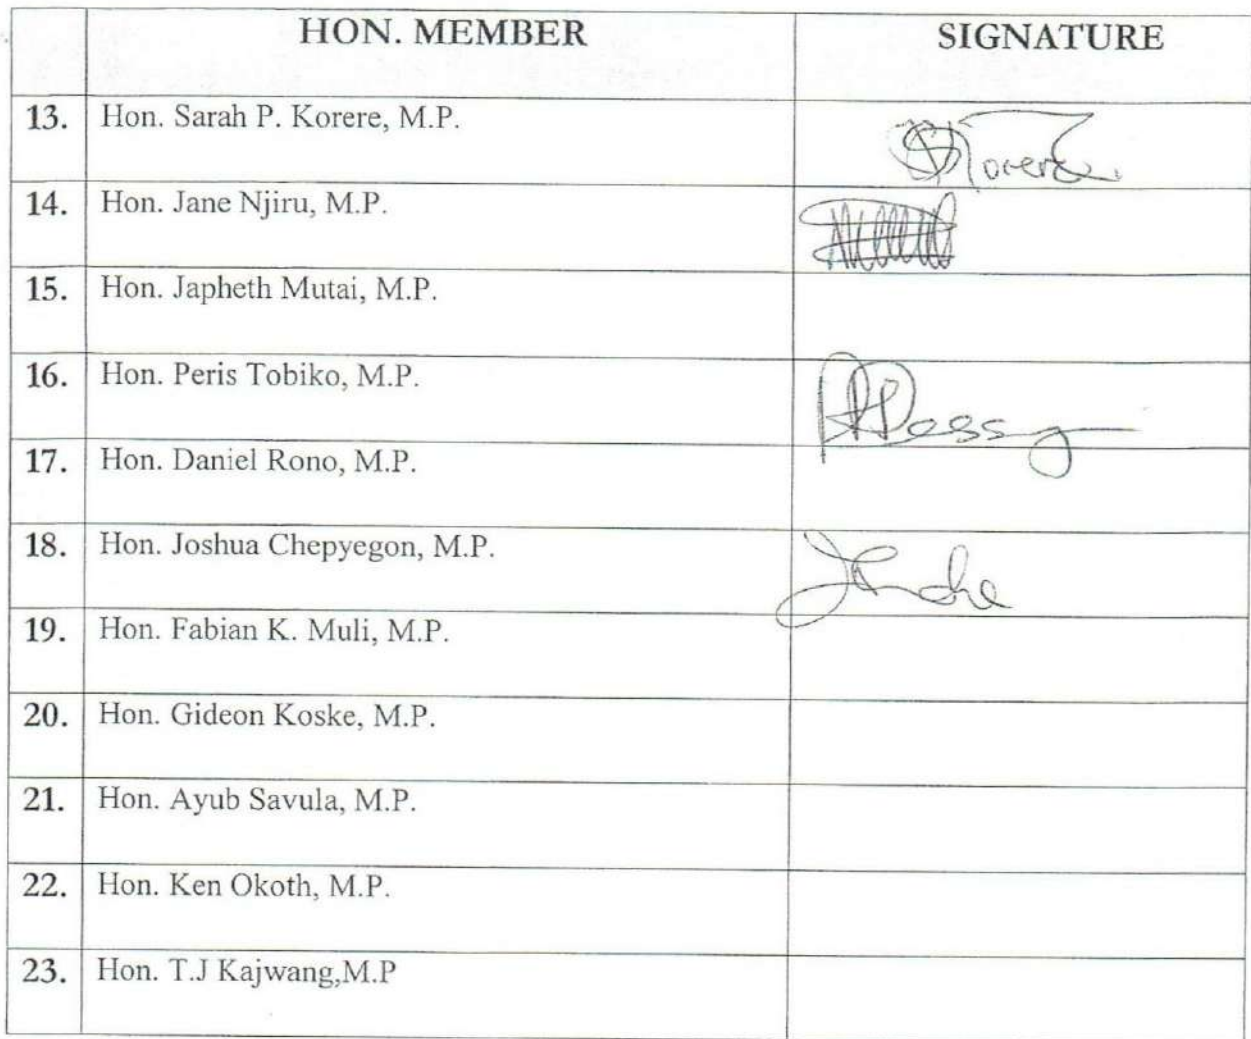 HON. MEMBER SIGNATURE
13. Hon. Sarah P. Korere, M.P.
14. Hon. Jane Njiru, M.P.
15. Hon. Japheth Mutai, M.P.
16. Hon. Peris Tobiko, M.P.
17. Hon. Daniel Rono, M.P.
18. Hon. Joshua Chepyegon, M.P.
19. Hon. Fabian K. Muli, M.P.
20. Hon. Gideon Koske, M.P.
21. Hon. Ayub Savula, M.P.
22. Hon. Ken Okoth, M.P.
23. Hon. T.J Kajwang,M.P